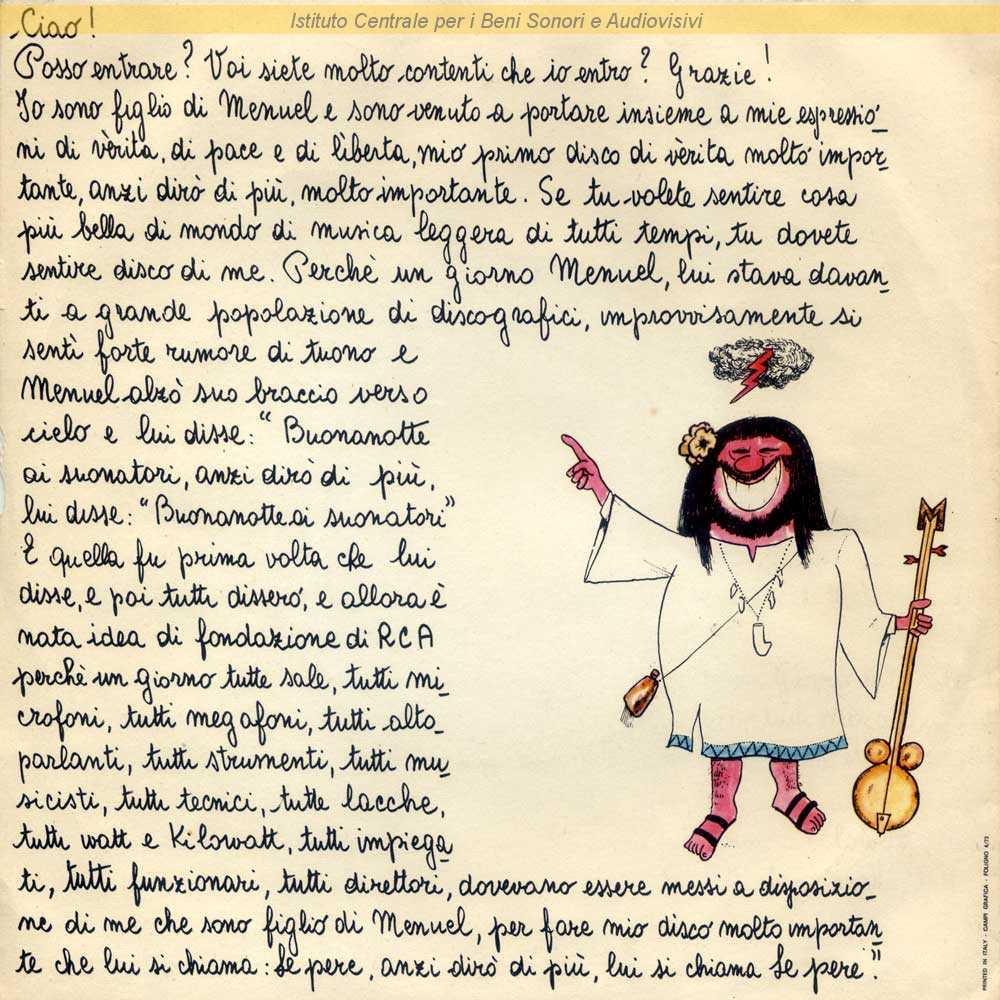 Istituto Centrale per i Beni Sonori e Audiovisivi
Ciao!
Posso entrare? Voi siete molto contenti che io entro? Grazie!
Io sono figlio di Menuel e sono venuto a portare insieme a mie espressio_
ni di vèrita, di pace e di lìberta, mio primo disco di vèrita molto impor_
tante, anzi dirò di più, molto importante. Se tu volete sentire cosa
più bella di mondo di musica leggera di tutti tempi, tu dovete
sentire disco di me. Perchè un giorno Menuel, lui stava davan_
ti a grande popolazione di discografici, improvvisamente si
sentì forte rumore di tuono e
Menuel alzò suo braccio verso
cielo e lui disse: "Buonanotte
ai suonatori, anzi dirò di più,
lui disse: "Buonanotte ai suonatori"
E quella fu prima volta che lui
disse, e poi tutti dissero, e allora è
nata idea di fondazione di RCA
perchè un giorno tutte sale, tutti mi_
crofoni, tutti megafoni, tutti alto_
parlanti, tutti strumenti, tutti mu_
sicisti, tutti tecnici, tutte lacche,
tutti watt e Kilowatt, tutti impiega_
ti, tutti funzionari, tutti direttori, dovevano essere messi a disposizio_
ne di me che sono figlio di Menuel, per fare mio disco molto importan_
te che lui si chiama: Se pere, anzi dirò di più, lui si chiama Se pere".
M
PRINTED IN ITALY - CAMPI GRAFICA - FOLIGNO 4/73